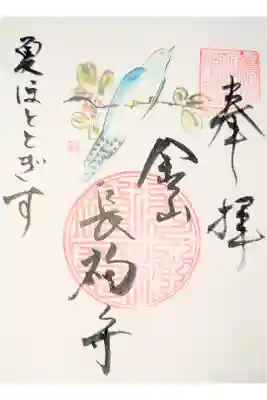 奉拝
金山
長福寺
夏ほととぎす